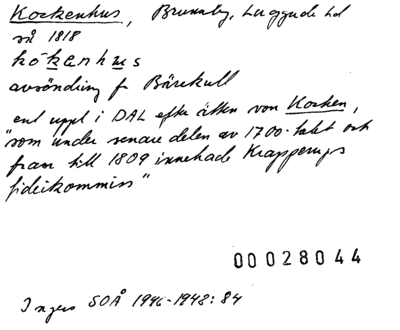 Kockenhus, Brunnby, Luggude hd
så 1818
kökenhus
avsöndring fr Bärekull
enl uppl i DAL efter ätten von Kochen,
"som under senare delen av 1700-talet och
fram till 1809 innehade Krapperups
fideikommiss"
00028044
Ingers SOÅ 1946-1948: 84